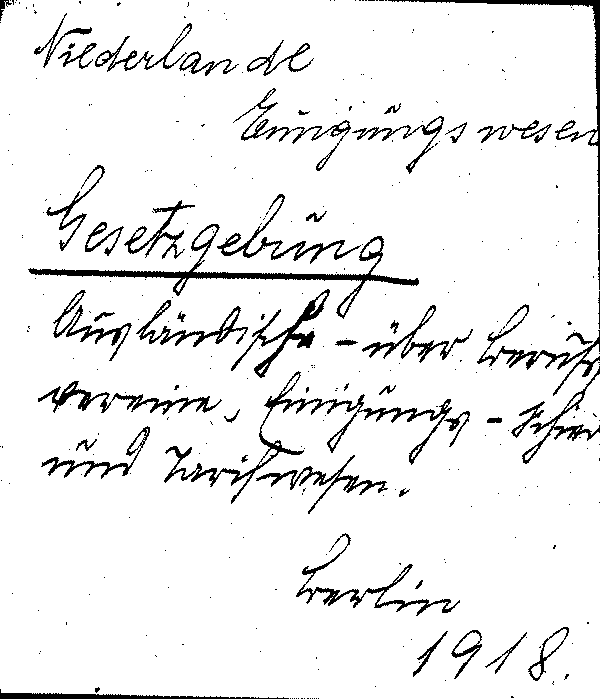 Niederlande
Einigungswesen
Gesetzgebung
Ausländische - über Berufs
vereine, Einigungs - Schied
und Tarifwesen.
Berlin
1918.